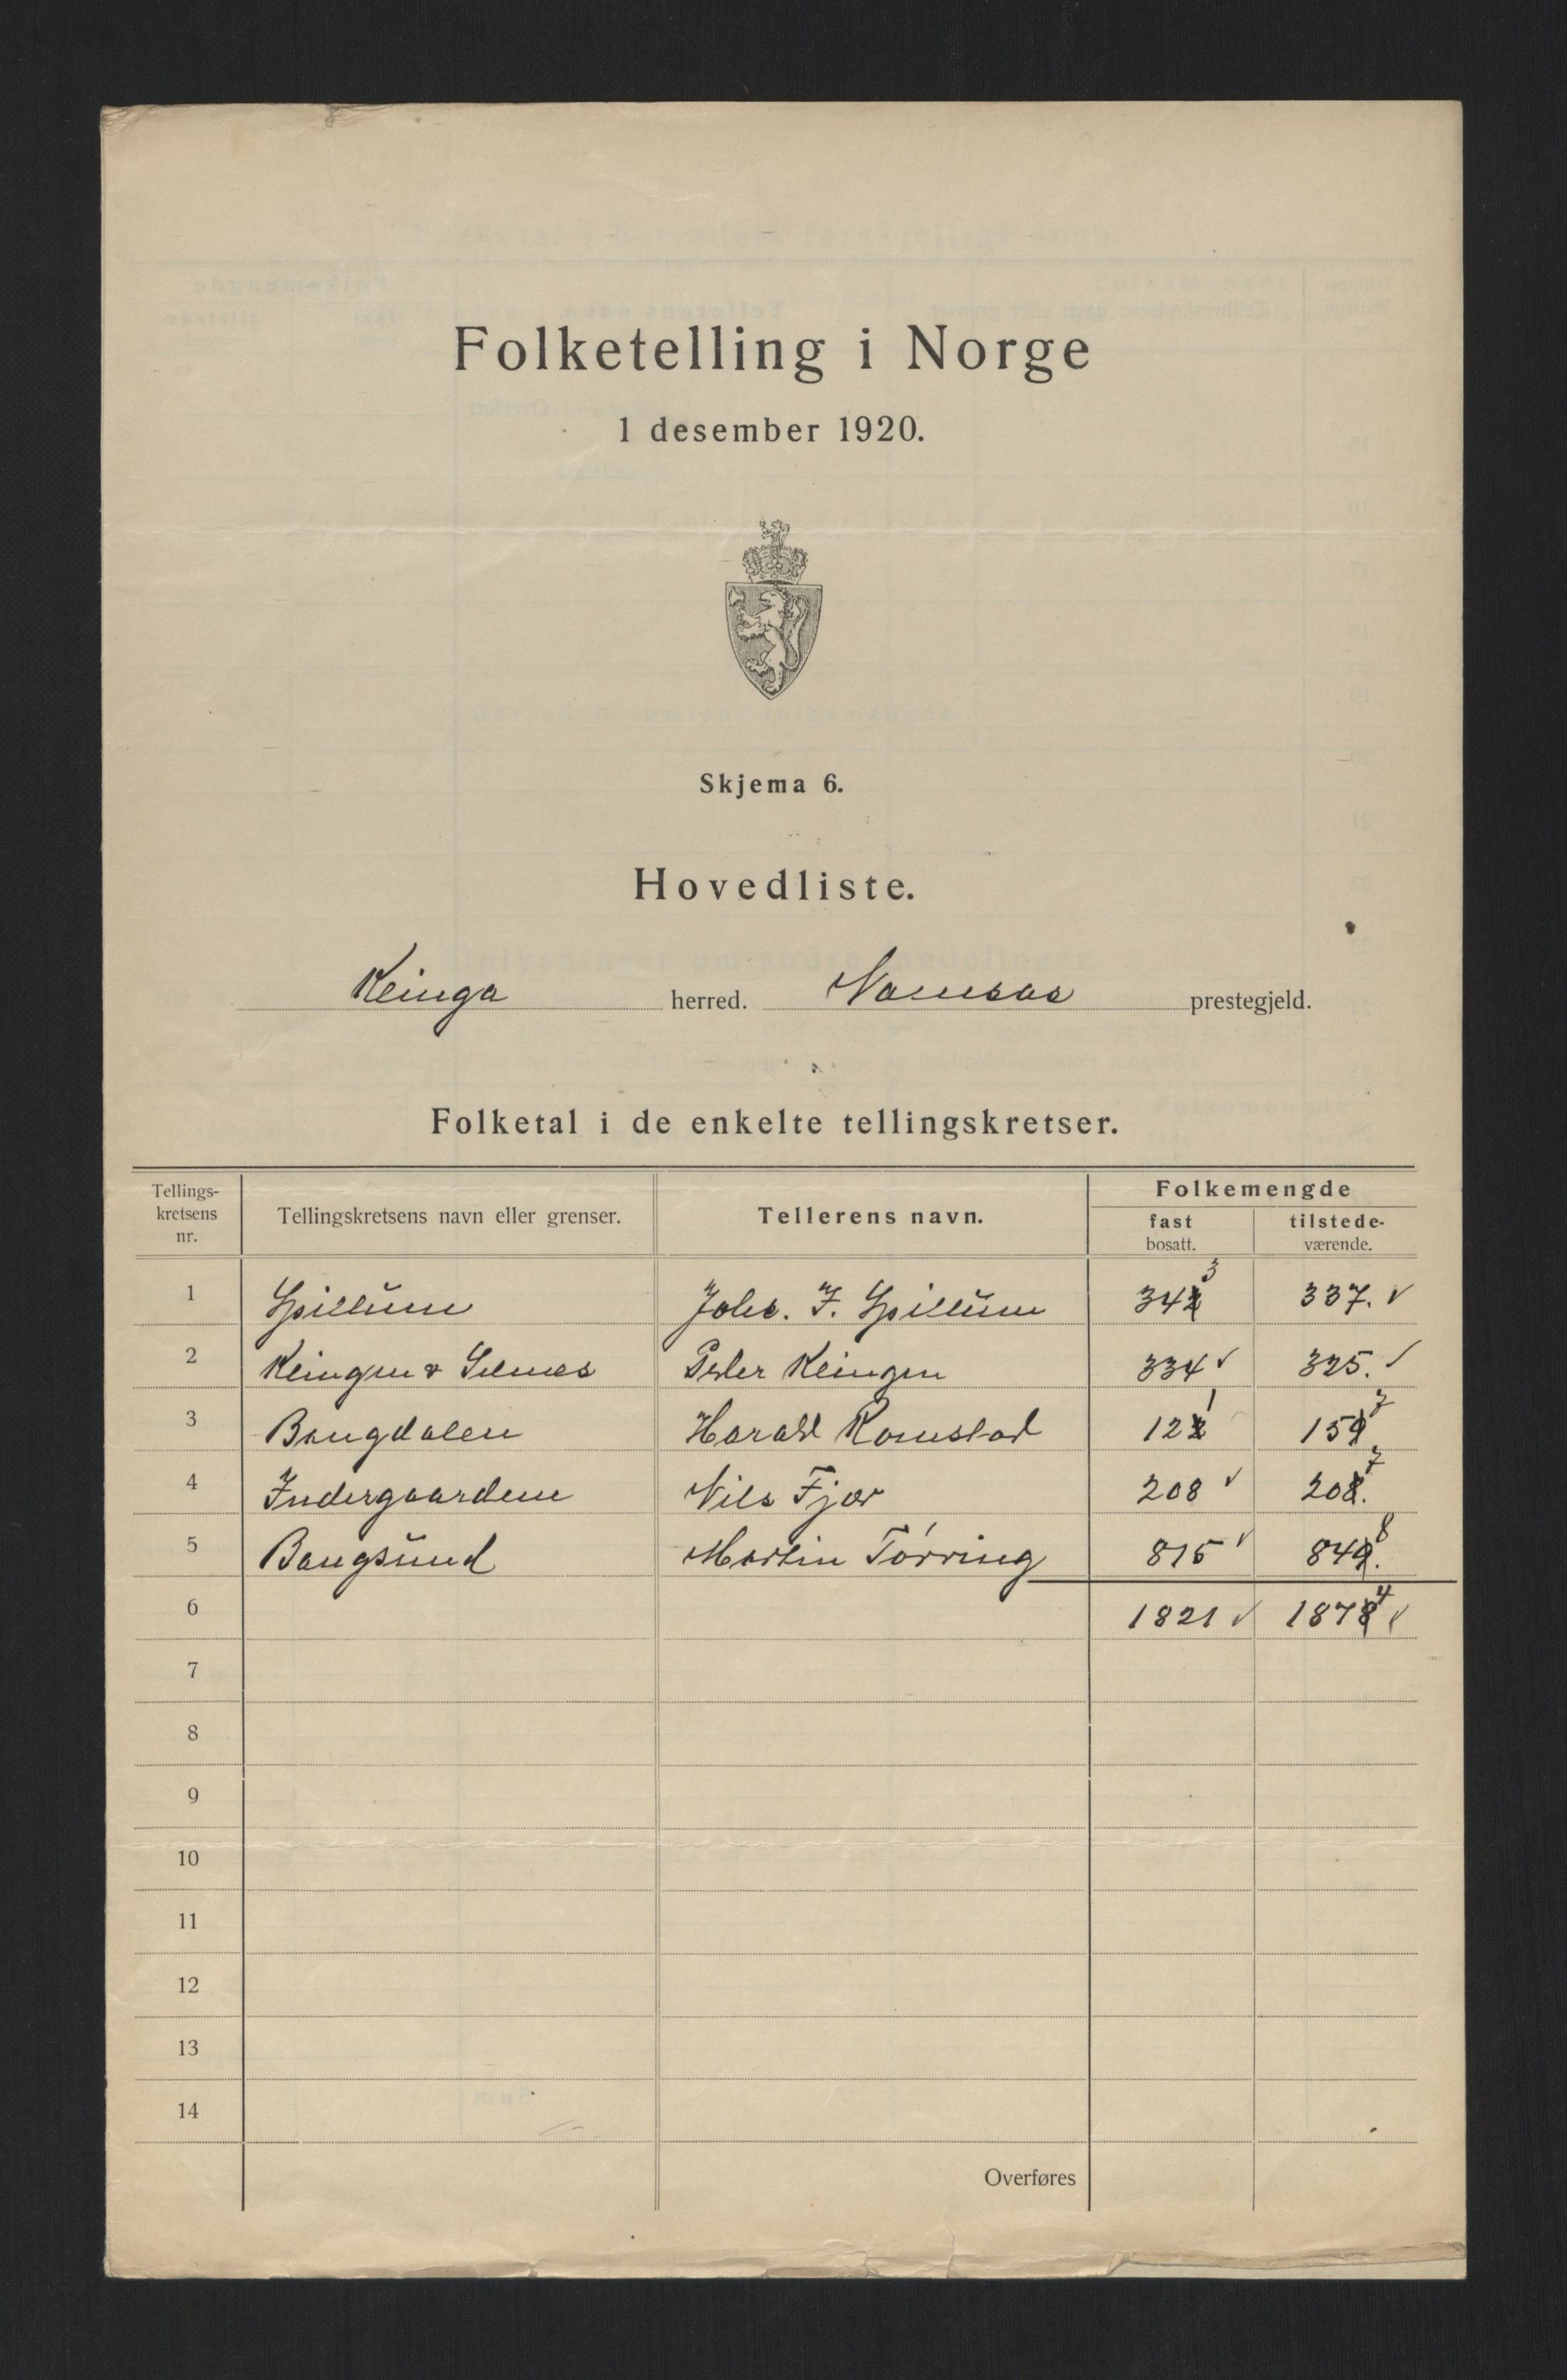 Folketelling i Norge
1 desember 1920.
Skjema 6.
Hovedliste.
Klinga herred. Namsos prestegjeld.
Folketal i de enkelte tellingskretser.
Tellings-
kretsens
nr.
Tellingskretsens navn eller grenser.
Tellerens navn.
Folkemengde
fast
bosatt.
tilstede-
værende.
1 Spillum Johs. F. Spillum 342 3 337. ✓
2 Klingen & Selnes Peder Klingen 334 ✓ 325. ✓
3 Bangdalen Harald Romstad 122 1 159 7
4 Indergaardene Nils Fjær 208 ✓ 208. 7
5 Bangsund Martin Tørring 815 ✓ 849. 8
6 1821 ✓ 1878 4 ✓
7
8
9
10
11
12
13
14
Overføres